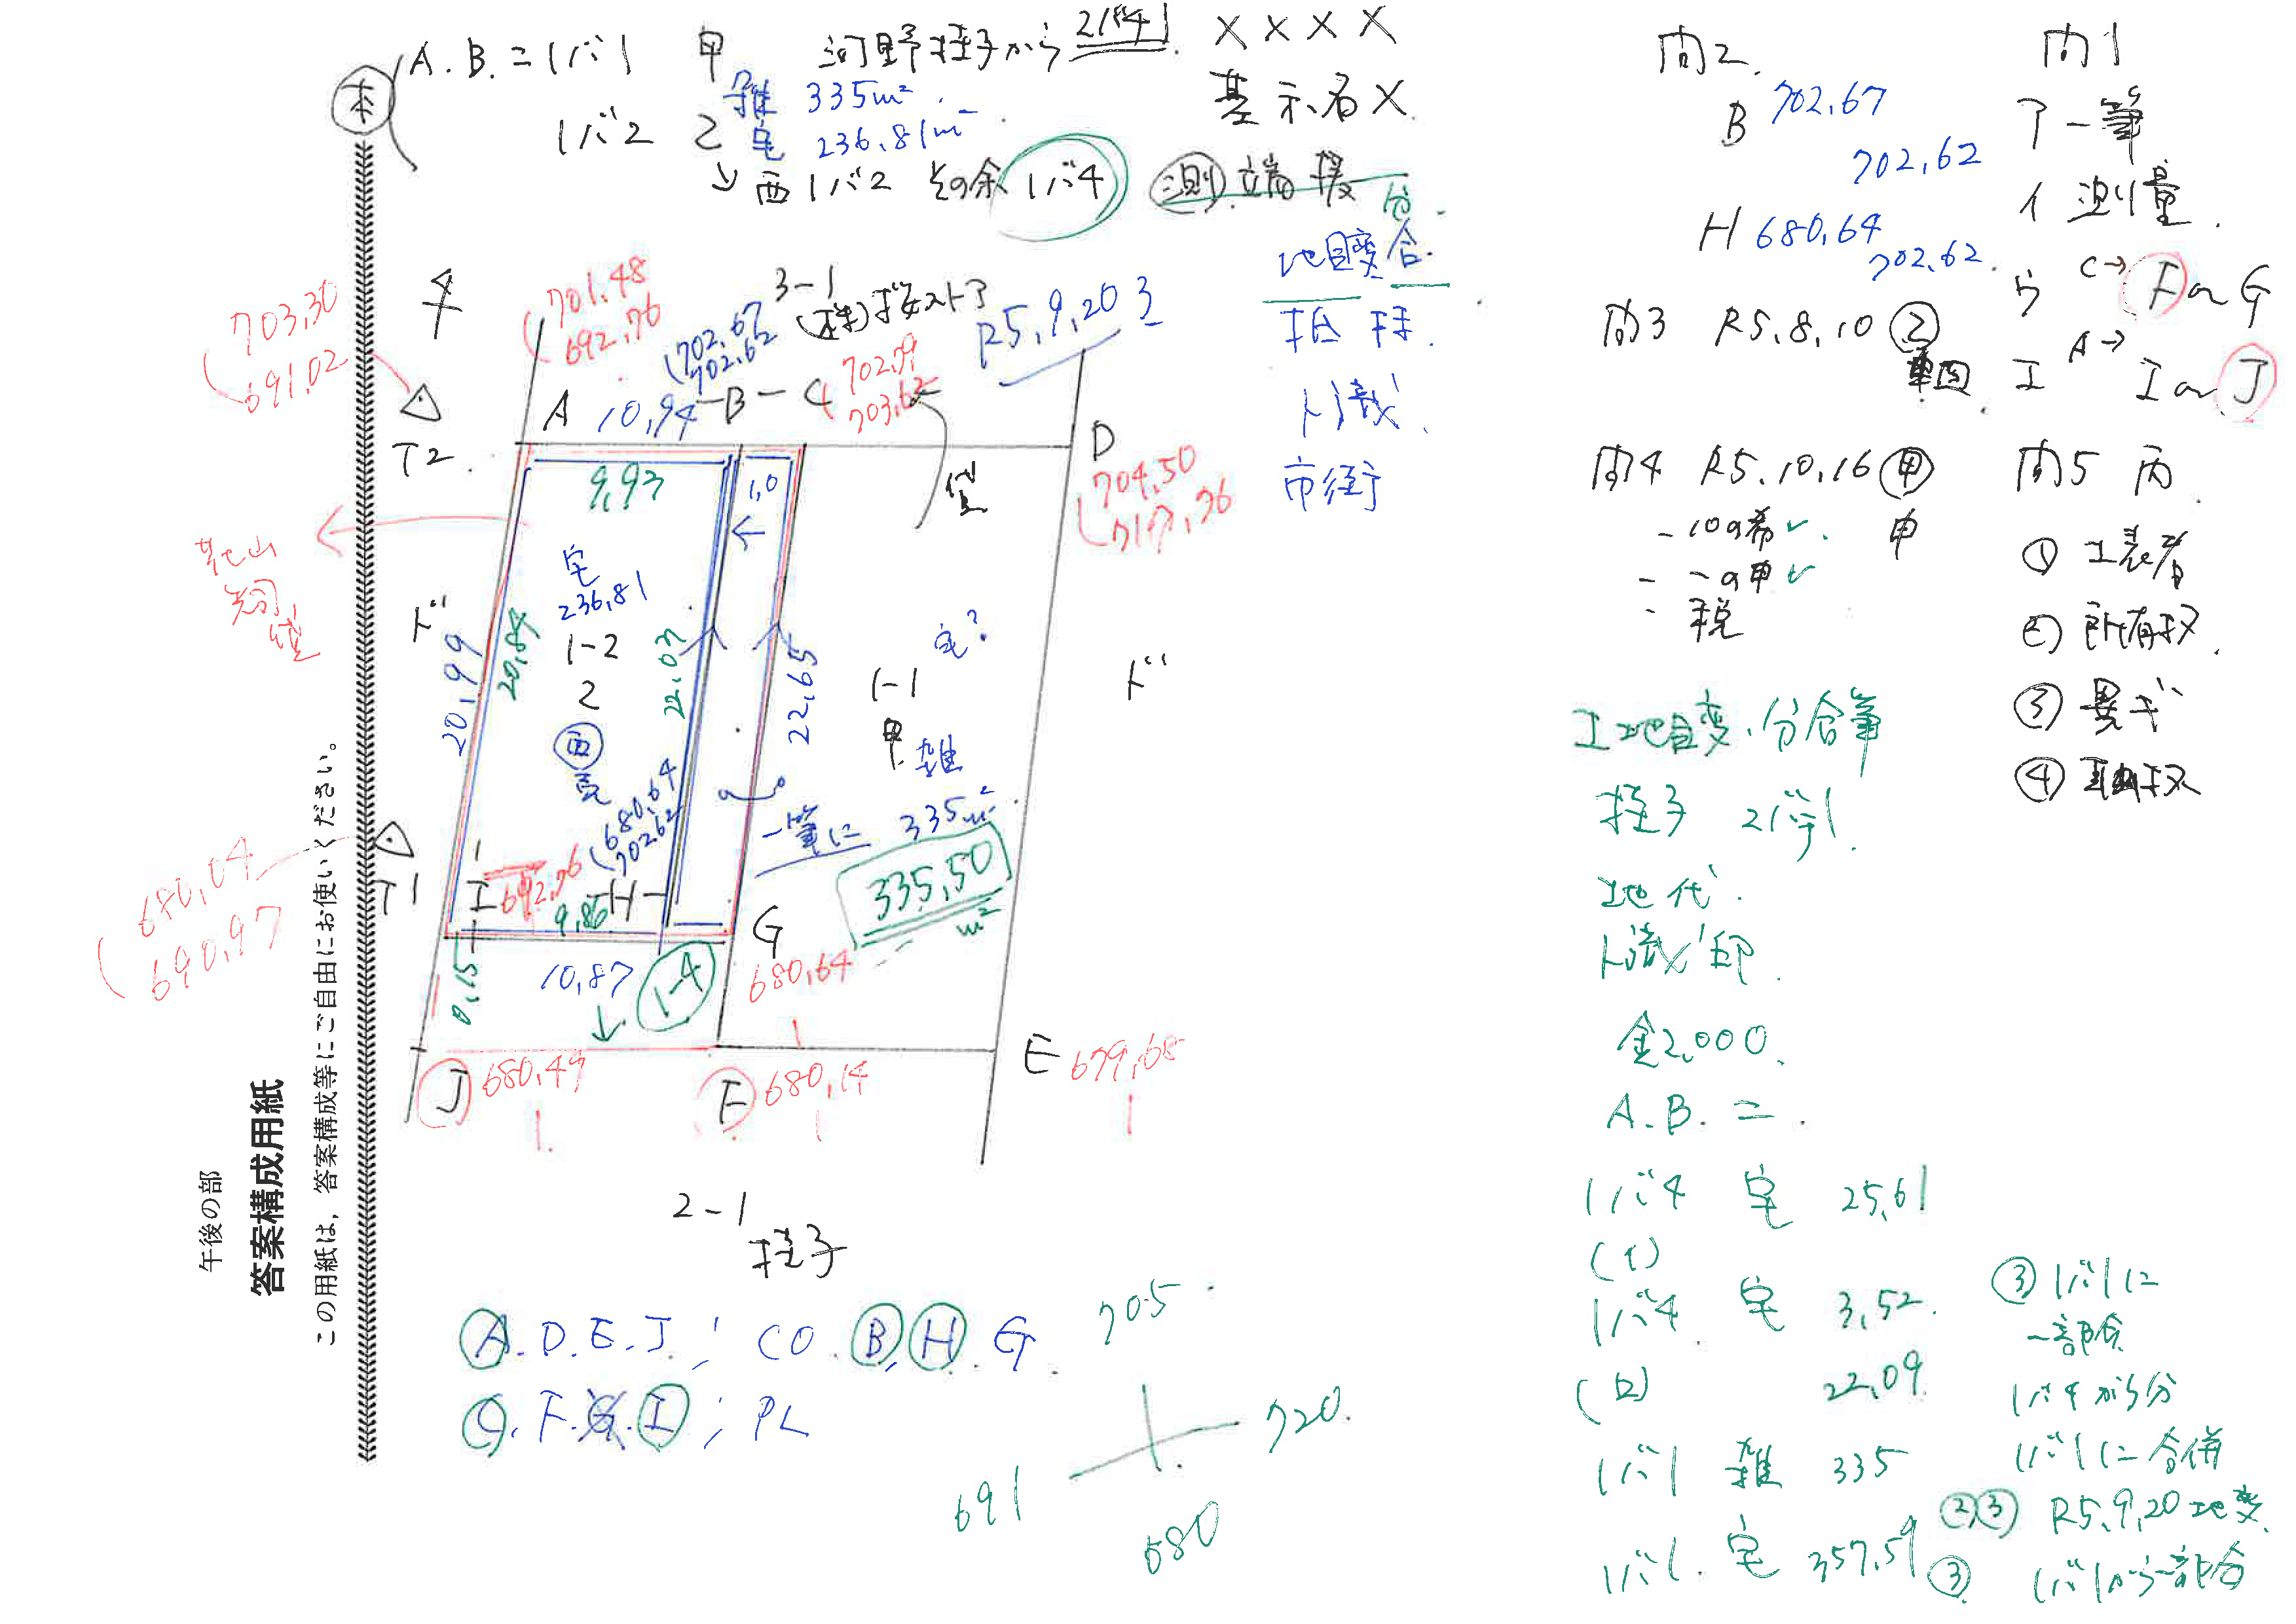 午後の部
答案構成用紙
この用紙は,答案構成等にご自由にお使いください。
本
A.B.=1バ1 甲
1バ2 乙
雑 335m²
宅 236.81m²
→西1バ2 その余 1バ4
河野桂子から21バ1
X X X X
基 示 名 X
測 立 端
分
地目変 合.
市街
R5.9.20
4
703.30
691.02
T2
701.48
692.76
3-1
(株)
702.67
702.62
702.79
703.62
A 10.94 -B- C
D
704.50
717.76
9.93
1.0
宅
236.81
1-2
2
西
20.99
20.84
22.03
22.65
宅?
1-1
甲 雑
ド
ド
335m²
一筆に
335.50
m²
680.64
702.62
I
692.76
9.86
H
G
680.64
0.15
10.87
1-4
T1
680.04
690.97
J 680.49
F 680.14
E 679.68
2-1
桂子
A.D.E.J ; CO. B,H.G
C.F.G.I ; PL
705
691
720.
680
問2.
B 702.67
702.62
H 680.64
702.62.
問3 R5.8.10 乙
問4 R5.10.16 甲
申
税
土地目変.分合筆
桂子 21バ1
地代.
印
金2,000.
A.B.=.
1バ4 宅 25.61
(イ)
1バ4 宅 3.52.
(ロ) 22.09.
1バ1 雑 335
1バ1. 宅 357.59
問1
ア 一筆
イ 測量.
ウ C→ F or G
エ A→ I or J
問5 丙
①
② 所有权.
③ 異ギ
④
③ 1バ1に
一部合
1バ4から分
1バ1に合併
②,③ R5.9.20 地変
③ 1バ1から一部合